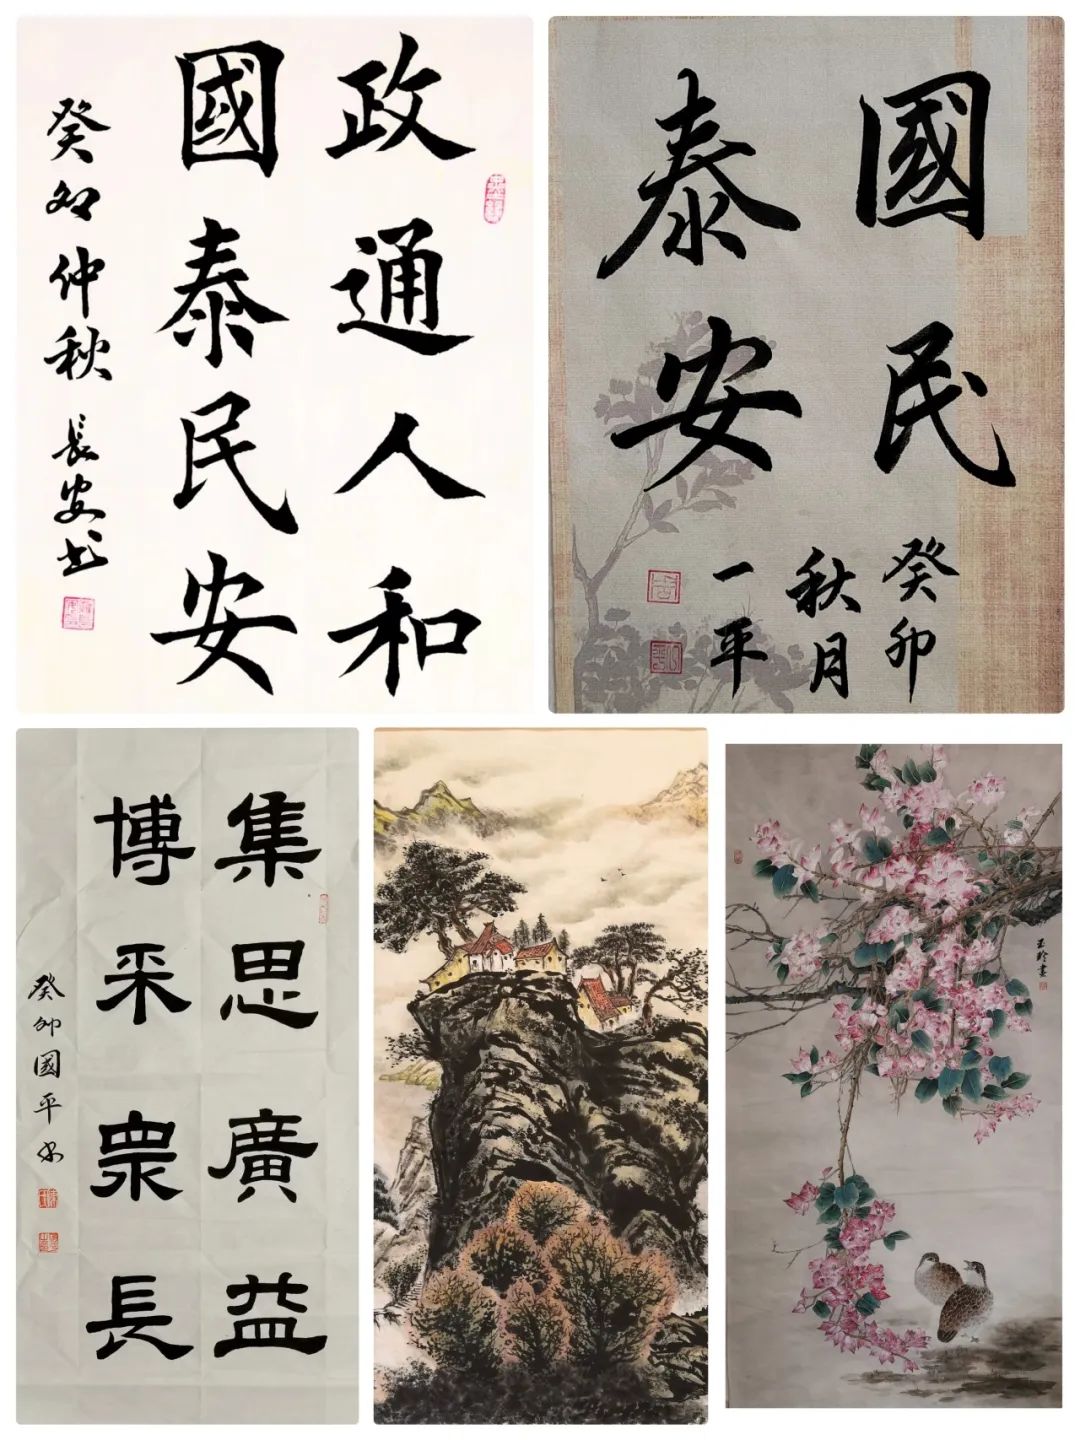 政通人和
國泰民安
癸卯仲秋 長安书
國民
泰安
癸卯
秋月
一平
集思廣益
博采衆長
癸卯國平书
玉珍畫